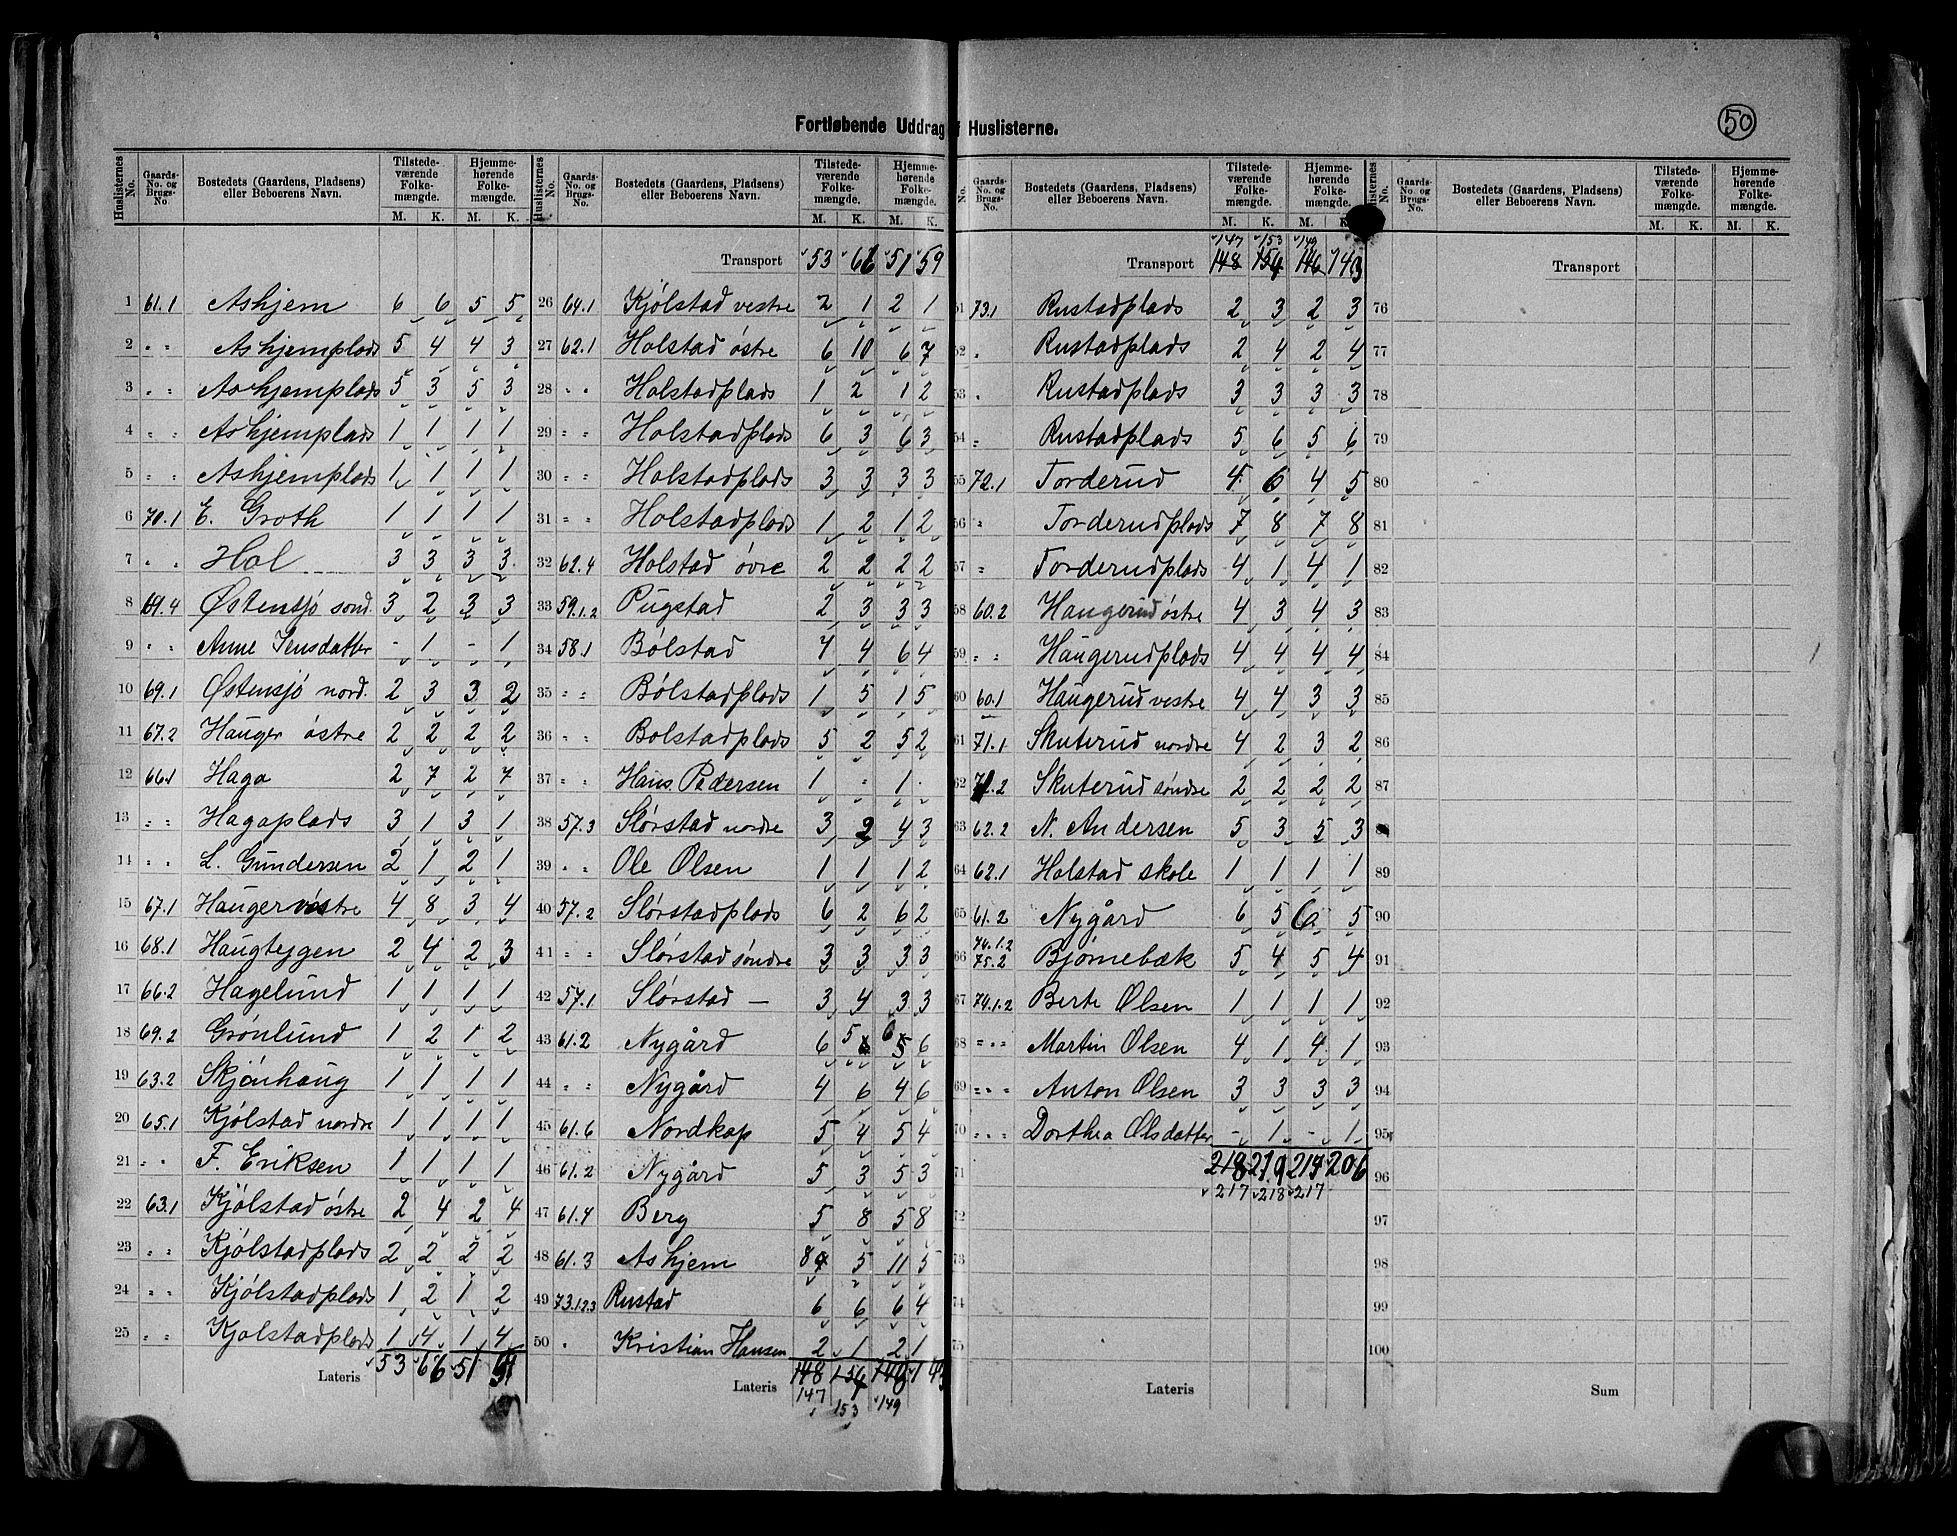 50
Fortløbende Uddrag af Huslisterne.
Huslisternes No. | Gaards-No. og Brugs-No. | Bostedets (Gaardens, Pladsens) eller Beboerens Navn. | Tilstedeværende Folkemængde. M. K. | Hjemmehørende Folkemængde. M. K.
1 61.1 Askjem 6 6 5 5
2 " " Askjemplads 5 4 4 3
3 " " Askjemplads 5 3 5 3
4 " " Askjemplads 1 1 1 1
5 " " Askjemplads 1 1 1 1
6 70.1 E. Groth 1 1 1 1
7 " " Hol 3 3 3 3
8 69.4 Østensjö sönd. 3 2 3 3
9 " " Anne Jensdatter - 1 - 1
10 69.1 Østensjö nord. 2 3 3 2
11 67.2 Hauger østre 2 2 2 2
12 66.1 Haga 2 7 2 7
13 " " Hagaplads 3 1 3 1
14 " " L. Gundersen 2 1 2 1
15 67.1 Hauger vestre 4 8 3 4
16 68.1 Haugteggen 2 4 2 3
17 66.2 Hagelund 1 1 1 1
18 69.2 Grönlund 1 2 1 2
19 63.2 Skjönhaug 1 1 1 1
20 65.1 Kjölstad nordre 1 1 1 1
21 " " F. Eriksen 1 1 1 1
22 63.1 Kjölstad östre 2 4 2 4
23 " " Kjölstadplads 2 2 2 2
24 " " Kjölstadplads 1 2 1 2
25 " " Kjölstadplads 1 4 1 4
Lateris 53 66 51
Transport 53 51 59
26 64.1 Kjölstad vestre 2 1 2 1
27 62.1 Holstad östre 6 10 6 7
28 " " Holstadplads 1 2 1 2
29 " " Holstadplads 6 3 6 3
30 " " Holstadplads 3 3 3 3
31 " " Holstadplads 1 2 1 2
32 62.4 Holstad øvre 2 2 2 2
33 59.1.2 Pugstad 2 3 3 3
34 58.1 Bölstad 7 4 6 4
35 " " Bölstadplads 1 5 1 5
36 " " Bölstadplads 5 2 5 2
37 " " Hans Pedersen 1 - 1 -
38 57.3 Slörstad nordre 3 2 4 3
39 " " Ole Olsen 1 1 1 2
40 57.2 Slörstadplads 6 2 6 2
41 " " Slörstad söndre 3 3 3 3
42 57.1 Slörstad — 3 4 3 3
43 61.2 Nygård 6 5 6 6
44 " " Nygård 4 6 4 6
45 61.6 Nordkap 5 4 5 4
46 61.2 Nygård 5 3 5 3
47 61.4 Berg 5 8 5 8
48 61.3 Askjem 8 5 11 5
49 73.1.2.3 Rustad 6 6 6 4
50 " Kristian Hansen 2 1 2 1
Lateris 148 154 143
147 153 149
147 153 149
Transport 148 154 146 143
51 73.1 Rustadplads 2 3 2 3
52 " Rustadplads 2 4 2 4
53 " Rustadplads 3 3 3 3
54 " Rustadplads 5 6 5 6
55 72.1 Torderud 4 6 4 5
56 " Torderudplads 7 8 7 8
57 " Torderudplads 4 1 4 1
58 60.2 Haugerud östre 4 3 4 3
59 " " Haugerudplads 4 4 4 4
60 60.1 Haugerud vestre 4 4 3 3
61 71.1 Skuterud nordre 4 2 3 2
62 71.2 Skuterud söndre 2 2 2 2
63 62.2 N. Andersen 5 3 5 3
64 62.1 Holstad skole 1 1 1 1
65 61.2 Nygård 6 5 6 5
66 74.1.2 75.2 Bjørnebæk 5 4 5 4
67 74.1.2 Berte Olsen 1 1 1 1
68 " " " Martin Olsen 4 1 4 1
69 " " " Anton Olsen 3 3 3 3
70 " " " Dorthea Olsdatter - 1 - 1
71 218 219 214 206
217 218 217
72
73
74
75
Lateris
Transport
76
77
78
79
80
81
82
83
84
85
86
87
88
89
90
91
92
93
94
95
96
97
98
99
100
Sum